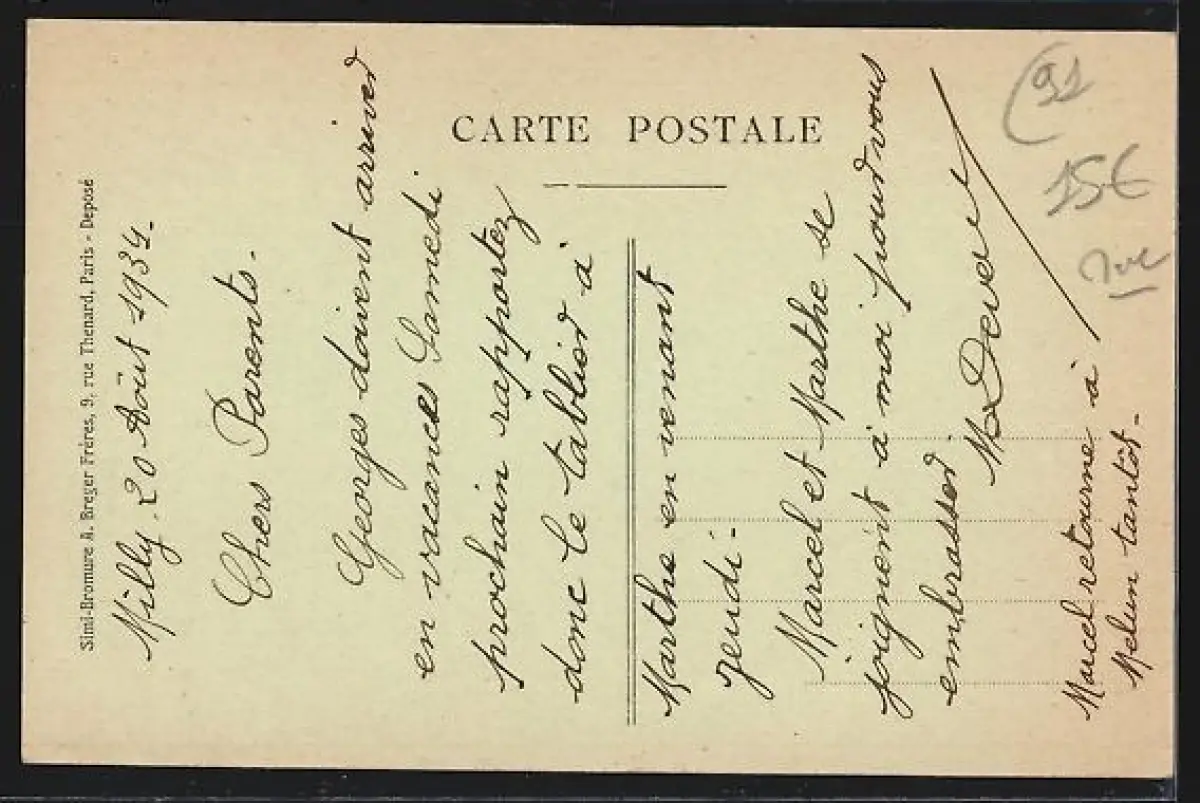 CARTE POSTALE
Simi-Bromure A. Breger Frères, 9, rue Thenard, Paris - Déposé
Milly. 20 Août 1934.
Chers Parents.
Georges doivent arriver
en vacances Samedi
prochain rapportez
donc le tablier à
Marthe en venant
jeudi -
Marcel et Marthe se
joignent à moi pour vous
embrasser.
Marcel retourne à
Melun tantôt -
(91
15€